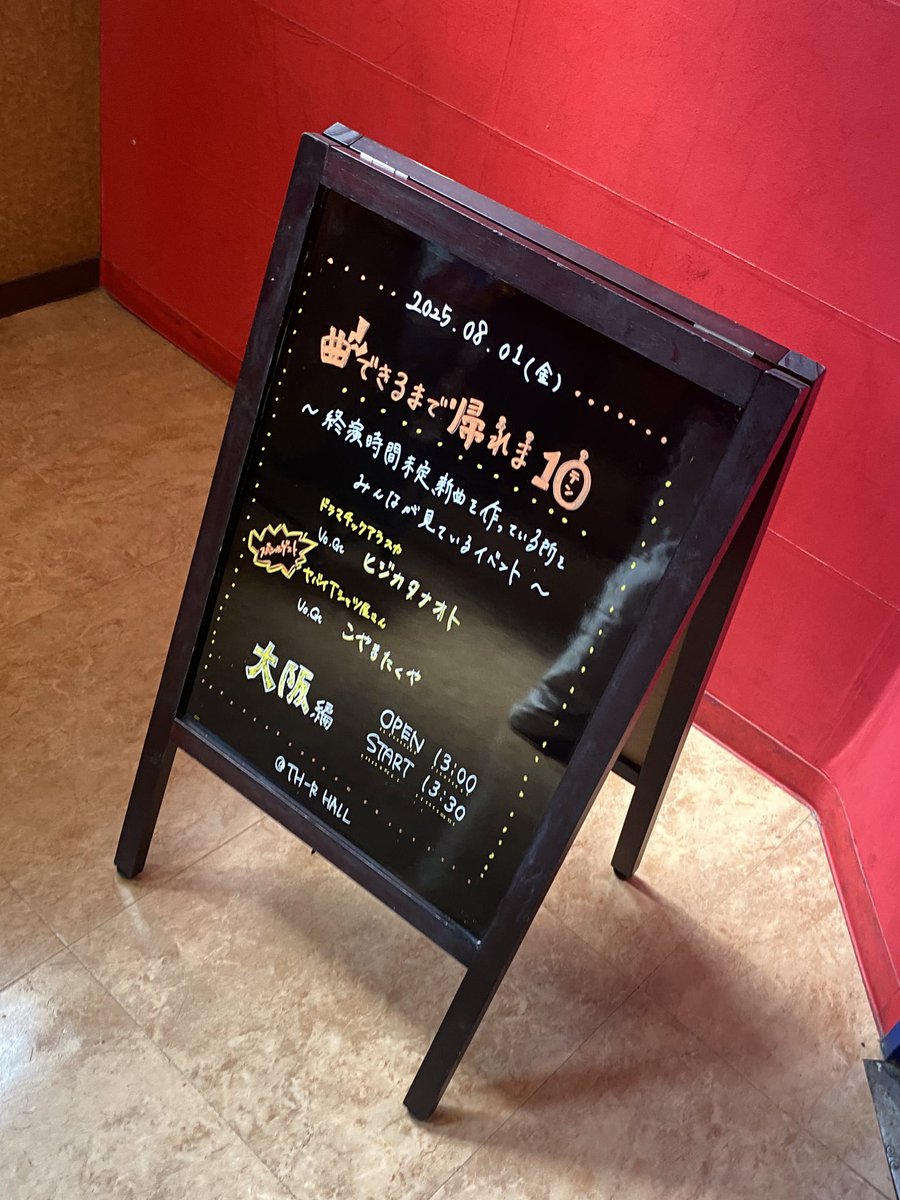 2025.08.01(金)
曲できるまで帰れま10
テン
～終演時間未定、新曲を作っている所を
みんなが見ているイベント～
ドラマチックアラスカ
Vo.Gt ヒジカタナオト
スペシャルゲスト
ヤバイTシャツ屋さん
Vo.Gt こやまたくや
大阪編
OPEN 13:00
START 13:30
@TH-R HALL